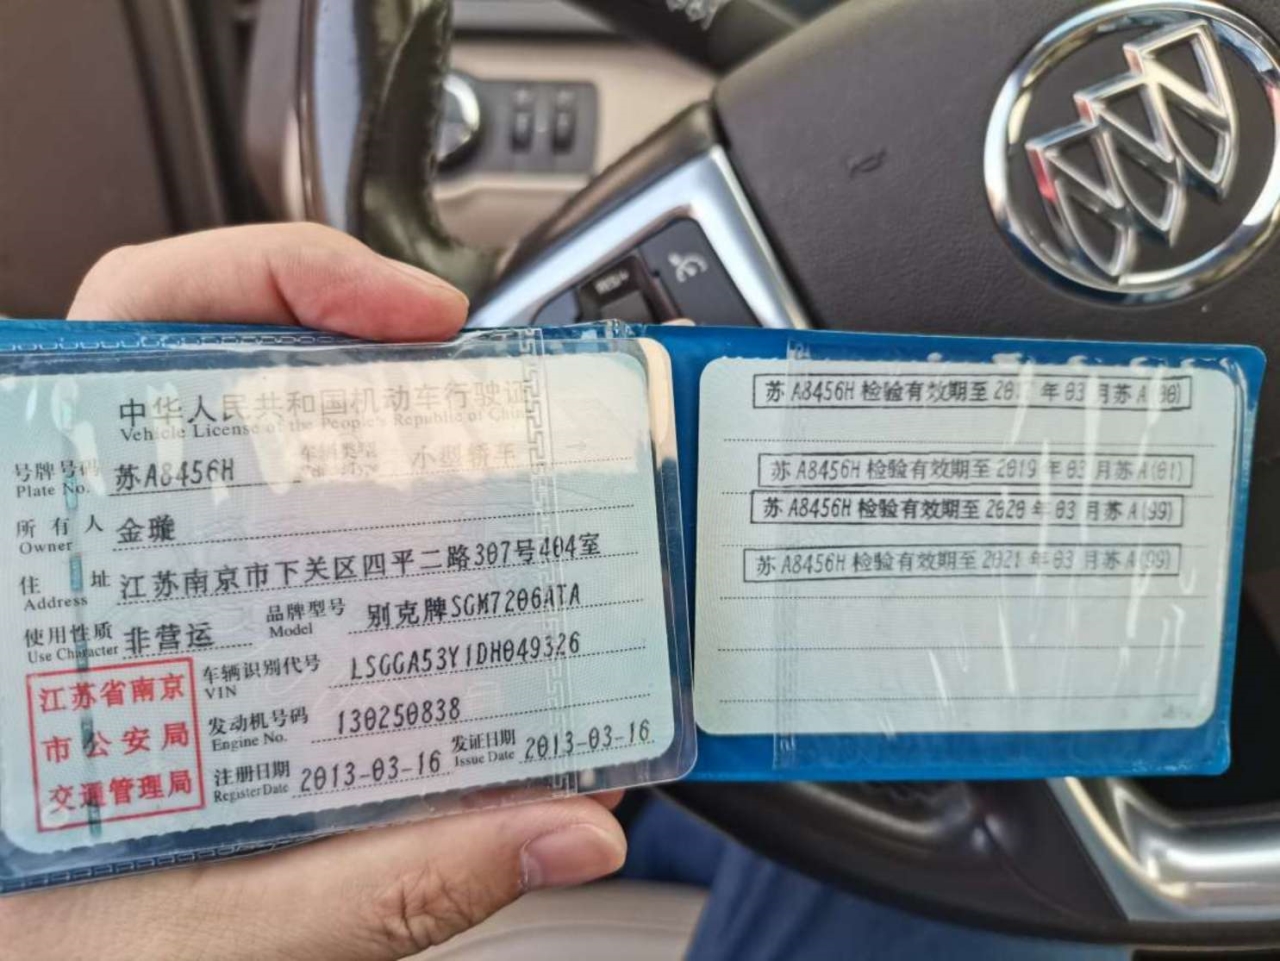 中华人民共和国机动车行驶证
Vehicle License of the People's Republic of China
号牌号码 苏A8456H 车辆类型 小型轿车
Plate No.
所有人 金璇
Owner
住址 江苏南京市下关区四平二路307号404室
Address
使用性质 非营运 品牌型号 别克牌SGM7206ATA
Use Character Model
江苏省南京市公安局交通管理局
车辆识别代号 LSGGA53Y1DH049326
VIN
发动机号码 130250838
Engine No.
注册日期 2013-03-16 发证日期 2013-03-16
Register Date Issue Date
苏A8456H检验有效期至 年03月苏A(00)
苏A8456H检验有效期至2019年03月苏A(01)
苏A8456H检验有效期至2020年03月苏A(99)
苏A8456H检验有效期至2021年03月苏A(99)